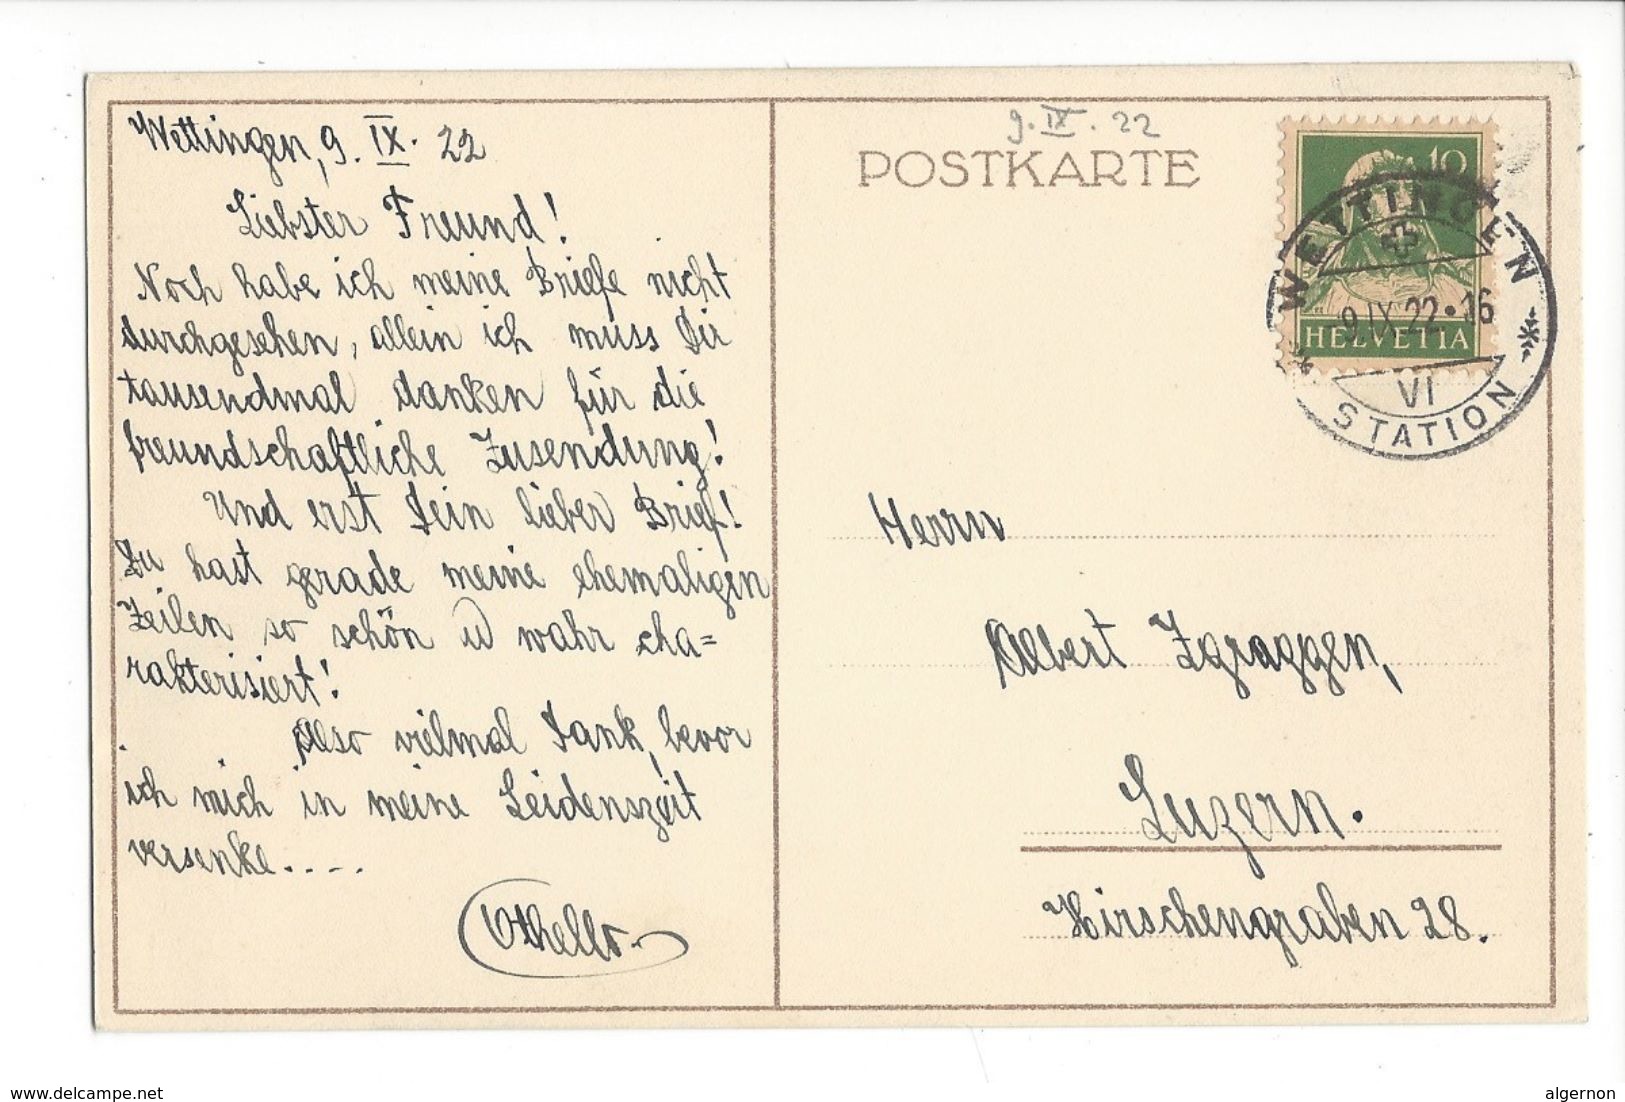 Wettingen, 9. IX. 22
Liebster Freund!
Noch habe ich meine Briefe nicht
durchgesehen, allein ich muss Dir
tausendmal danken für die
freundschaftliche Zusendung!
Und erst Dein lieber Brief!
Du hast gerade meine ehemaligen
Zeilen so schön u wahr cha=
rakterisiert!
Also vielmal Dank, bevor
ich mich in meine Leidenszeit
versenke.....
Othello.
9. IX. 22
POSTKARTE
10
HELVETIA
WETTINGEN
9.IX.22•16
VI
STATION
Herrn
Albert Zgraggen,
Luzern.
Hirschengraben 28.
www.delcampe.net
algernon